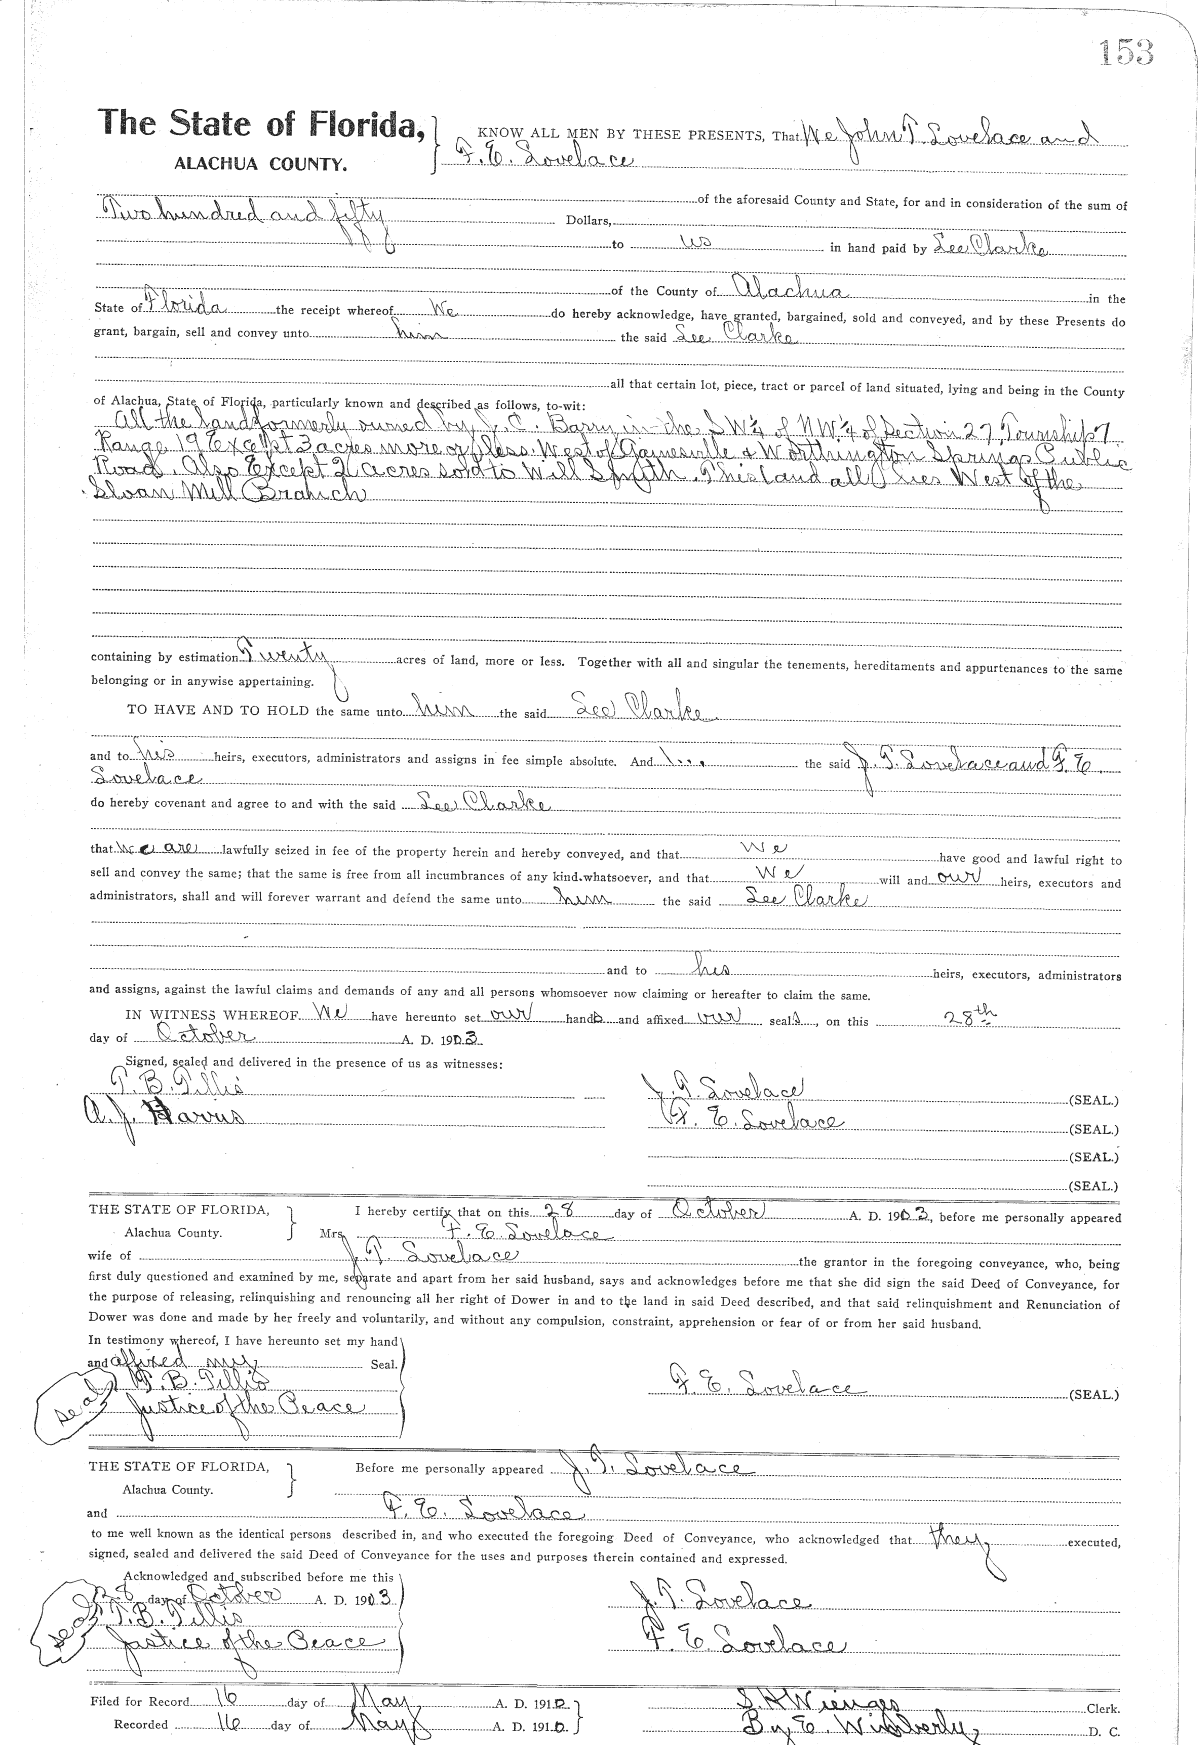 153
The State of Florida,
ALACHUA COUNTY.
KNOW ALL MEN BY THESE PRESENTS, That We John T. Lovelace and
F. E. Lovelace
of the aforesaid County and State, for and in consideration of the sum of
Two hundred and fifty Dollars,
to us in hand paid by Lee Clarke
of the County of Alachua in the
State of Florida the receipt whereof We do hereby acknowledge, have granted, bargained, sold and conveyed, and by these Presents do
grant, bargain, sell and convey unto him the said Lee Clarke
all that certain lot, piece, tract or parcel of land situated, lying and being in the County
of Alachua, State of Florida, particularly known and described as follows, to-wit:
All the land formerly owned by J. C. Barry in the SW¼ of NW¼ of Section 27, Township 7
Range 19 Except 3 acres more or less West of Gainesville & Worthington Springs Public
Road. Also Except 2 acres sold to Will Smith. This land all lies West of the
Sloan Mill Branch
containing by estimation Twenty acres of land, more or less. Together with all and singular the tenements, hereditaments and appurtenances to the same
belonging or in anywise appertaining.
TO HAVE AND TO HOLD the same unto him the said Lee Clarke
and to his heirs, executors, administrators and assigns in fee simple absolute. And the said J. T. Lovelace and F. E.
Lovelace
do hereby covenant and agree to and with the said Lee Clarke
that we are lawfully seized in fee of the property herein and hereby conveyed, and that We have good and lawful right to
sell and convey the same; that the same is free from all incumbrances of any kind whatsoever, and that We will and our heirs, executors and
administrators, shall and will forever warrant and defend the same unto him the said Lee Clarke
and to his heirs, executors, administrators
and assigns, against the lawful claims and demands of any and all persons whomsoever now claiming or hereafter to claim the same.
IN WITNESS WHEREOF We have hereunto set our hands and affixed our seals, on this 28th
day of October A. D. 1903.
Signed, sealed and delivered in the presence of us as witnesses:
T. B. Tillis
J. T. Lovelace (SEAL.)
A. J. Harris
F. E. Lovelace (SEAL.)
(SEAL.)
(SEAL.)
THE STATE OF FLORIDA,
Alachua County.
I hereby certify that on this 28 day of October A. D. 1903, before me personally appeared
Mrs. F. E. Lovelace
wife of J. T. Lovelace the grantor in the foregoing conveyance, who, being
first duly questioned and examined by me, separate and apart from her said husband, says and acknowledges before me that she did sign the said Deed of Conveyance, for
the purpose of releasing, relinquishing and renouncing all her right of Dower in and to the land in said Deed described, and that said relinquishment and Renunciation of
Dower was done and made by her freely and voluntarily, and without any compulsion, constraint, apprehension or fear of or from her said husband.
In testimony whereof, I have hereunto set my hand
and affixed my Seal.
seal T. B. Tillis
F. E. Lovelace (SEAL.)
Justice of the Peace
THE STATE OF FLORIDA,
Alachua County.
Before me personally appeared J. T. Lovelace
and F. E. Lovelace
to me well known as the identical persons described in, and who executed the foregoing Deed of Conveyance, who acknowledged that they executed,
signed, sealed and delivered the said Deed of Conveyance for the uses and purposes therein contained and expressed.
Acknowledged and subscribed before me this
28 day of October A. D. 1903
J. T. Lovelace
seal T. B. Tillis
Justice of the Peace
F. E. Lovelace
Filed for Record 16 day of May A. D. 1910
S. H. Wienges Clerk.
Recorded 16 day of May A. D. 1910.
By E. Wimberly D. C.